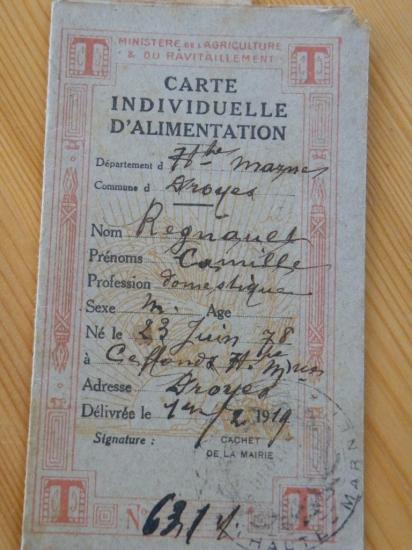 T MINISTÈRE DE L'AGRICULTURE T
& DU RAVITAILLEMENT
CARTE
INDIVIDUELLE
D'ALIMENTATION
Département d Hte Marne
Commune d Droyes
Nom Regnault
Prénoms Camille
Profession domestique
Sexe m. Age
Né le 23 Juin 78
à Ceffonds Hte Mne
Adresse Droyes
Délivrée le 1er/2 1919
Signature : CACHET
DE LA MAIRIE
T No 631 T
HAUTE-MARNE